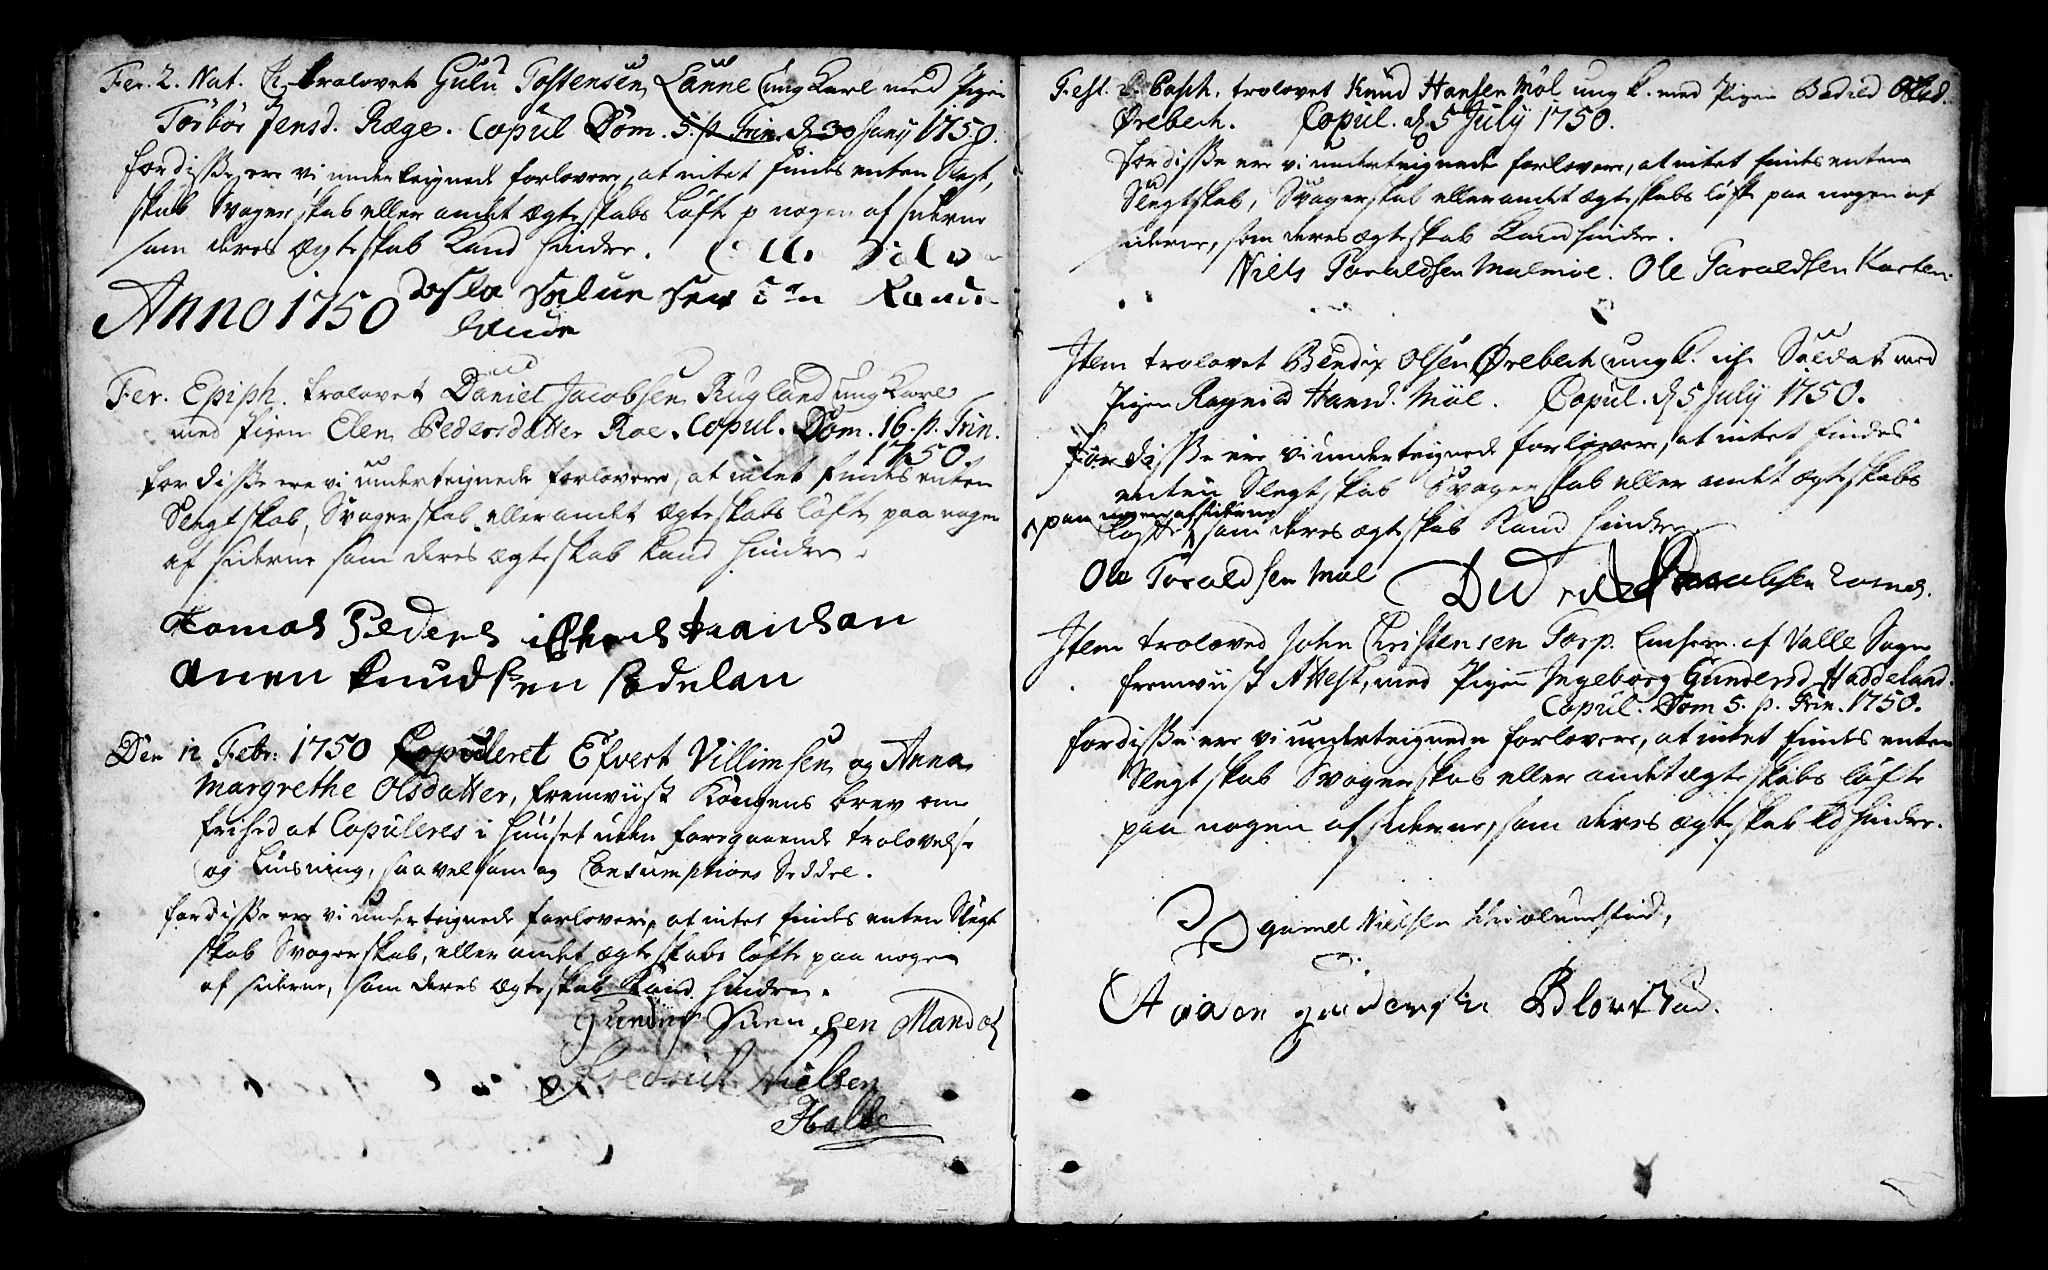 Fer. 2. Nat. Ch. trolovet Gulu Tostensen Lanne ung Karl med Pigen
Torbor Jensd. Ræge. Copul Dom. 5. p. Trin. d 30 Junij 1750.
for disse ere vi underteignede forlovere, at intet findes enten Slegt,
skab Svogerskab eller andet Ægteskabs Løfte p nogen af siderne
som deres Ægteskab Kand hindre.
Anno 1750
Fer. Epiph. trolovet Daniel Jacobsen Rugland ung Karl
med Pigen Elen Pedersdatter Roe. Copul. Dom. 16. p. Trin.
1750.
for disse ere vi underteignede forlovere, at intet findes enten
Slegtskab, Svogerskab eller andet Ægteskabs løfte paa nogen
af siderne som deres Ægteskab Kand hindre.
Tomas Peders
Anen Knudsen
Den 12 Febr. 1750 Copuleret Efvert Villimsen og Anna
Margrethe Olsdatter, fremviist Kongens brev om
frihed at Copuleres i Huuset uden foregaaende trolovelse
og Liusning, saavelsom og Consumptions Seddel.
for disse ere vi underteignede forlovere, at intet findes enten Slegt
skab Svogerskab, eller andet ægteskabs løfte paa nogen
af siderne, som deres Ægteskab Kand hindre.
Suensen Mandal
Fredrich Nielsen
Halse
Fest. 2. Pasch. trolovet Knud Hansen Møl ung k. med Pigen Bodild Olsd.
Ørebech. Copul. d 5 July 1750.
for disse ere vi underteignede forlovere, at intet findes enten
Slegtskab, Svogerskab eller andet ægteskabs løfte paa nogen af
siderne, som deres ægteskab Kand hindre.
Niels Taraldsen Malmøe. Ole Taraldsen
Item trolovet Bendix Olsen Ørebech ung k. Soldat med
Pigen Ragnild Hansd. Møl. Copul. d 5 July 1750.
for disse ere vi underteignede forlovere, at intet findes
enten Slegtskab Svogerskab eller andet ægteskabs
paa nogen af siderne
løfte som deres ægteskab Kand hindre
Ole Taraldsen Møl
Item troloved John Christensen Torp. af Valle Sogn
fremviist Attest, med Pigen Ingeborg Gundersd Haddeland.
Copul. Dom 5. p. Trin. 1750.
for disse ere vi underteignede forlovere, at intet findes enten
Slegtskab Svogerskab eller andet ægteskabs løfte
paa nogen af siderne, som deres ægteskab kd hindre.
Nielsen